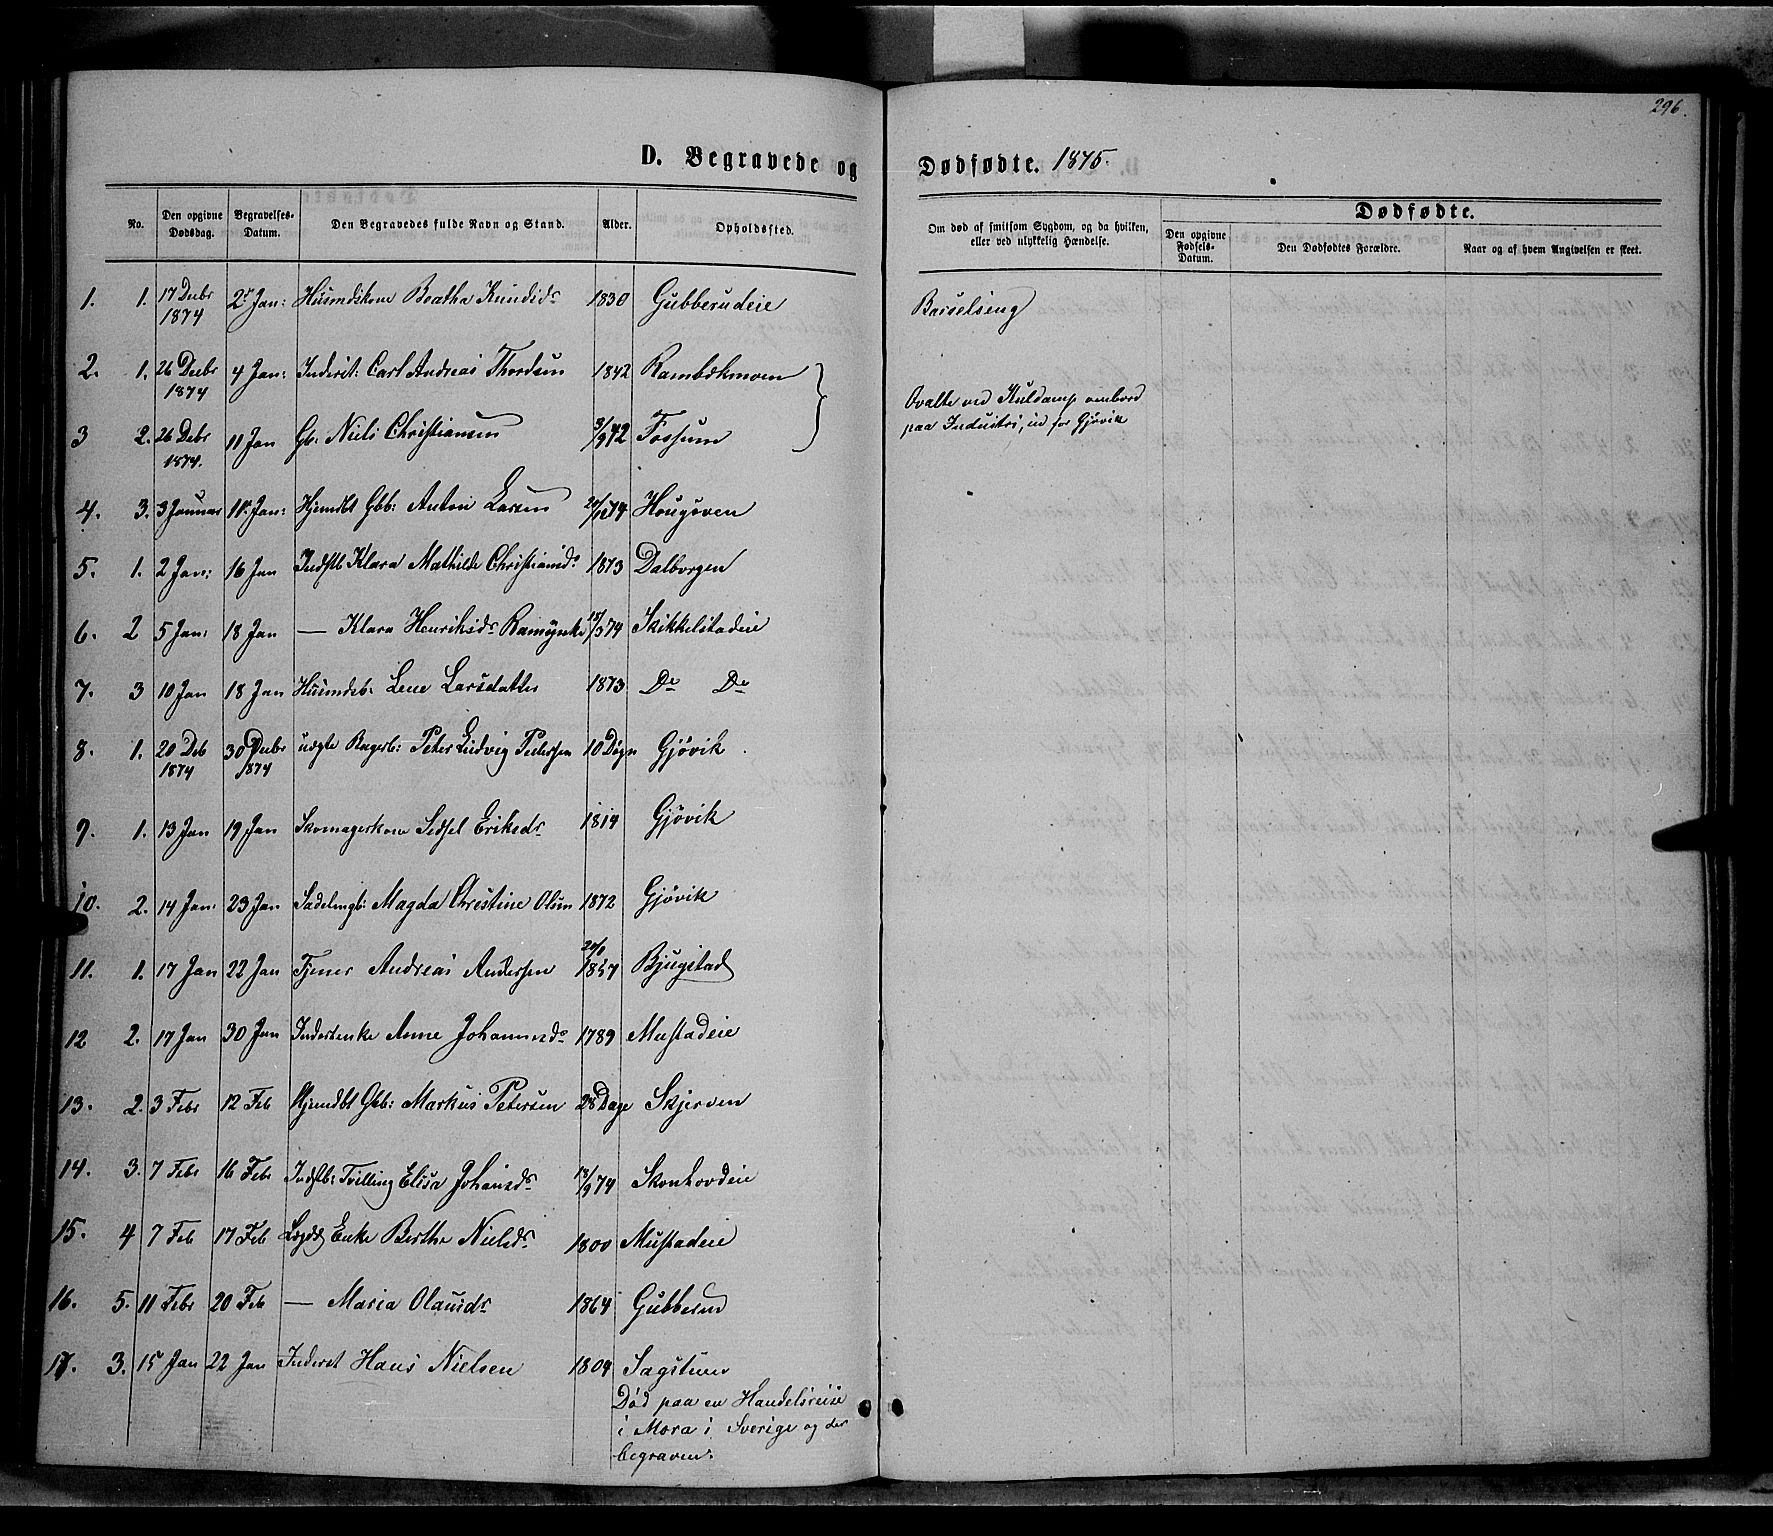 296.
D. Begravede og Dødfødte. 1875.
No. Den opgivne Dødsdag. Begravelses-Datum. Den Begravedes fulde Navn og Stand. Alder. Opholdssted. Om død af smitsom Sygdom, og da hvilken, eller ved ulykkelig Hændelse. Dødfødte.
Den opgivne Fødsels-Datum. Den Dødfødtes Forældre. Naar og af hvem Angivelsen er skeet.
1. 1. 17 Decbr 1874 2 Jan: Husmdskone Beatha Knudsds 1830 Gubberudeie Barselseng
2. 1. 26 Decbr 1874 4 Jan: Inderst: Carl Andreas Thordsen 1842 Rambekmoen
3 2. 26 Debr 1874. 11 Jan Gb: Niels Christiansen 3/9 42 Fossum
Qvalte ved Kuldamp ombord
paa Industri, ud for Gjøvik
4. 3. 3 Januar 11. Jan: Hjemdbt Gbb: Anton Larsen 74 Hougsven
5. 1. 2 Jan: 16 Jan Indstb Klara Mathilde Christiansd. 1873 Dalborgen
6. 2 5 Jan: 18 Jan — Klara Henriksdr 74 Skikkelstadeie
7. 3 10 Jan 18 Jan Husmdsb: Lene Larsdatter 1873 Do Do
8. 1. 20 Deb 1874 30 Decbr 1874 uægte Bagerb: Peter Ludvig Pedersen 10 Døgn Gjøvik
9. 1. 13 Jan 19 Jan Skomagerkone Sidsel Eriksdr 1819 Gjøvik
10. 2. 14 Jan: 23 Jan Sadelmgb: Magda Christine Olsen 1872 Gjøvik
11. 1. 17 Jan 22 Jan Tjener Andreas Andersen 1857 Bjugstad
12 2. 17 Jan 30 Jan Inderstenke Anne Johannesd. 1789 Mustadeie
13. 2. 3 Febr 12 Feb Hjemdbt Gbb: Markus Petersen 28 Dage Skjerven
14. 3. 7 Febr 16 Febr Indstb: Tvilling Elisa Johansdr. 13/9 74 Skonhovdeie
15. 4 7 Feb 17 Feb Lægds Enke Berthe Nielsdr. 1800 Mustadeie
16. 5. 11 Febr 20 Feb — Maria Olausdr 1864 Gubberud
17. 3. 15 Jan 22 Jan Inderst Hans Nielsen 1804 Sagstuen
Død paa en Handelsreise
i Mora i Sverige og der
begraven.